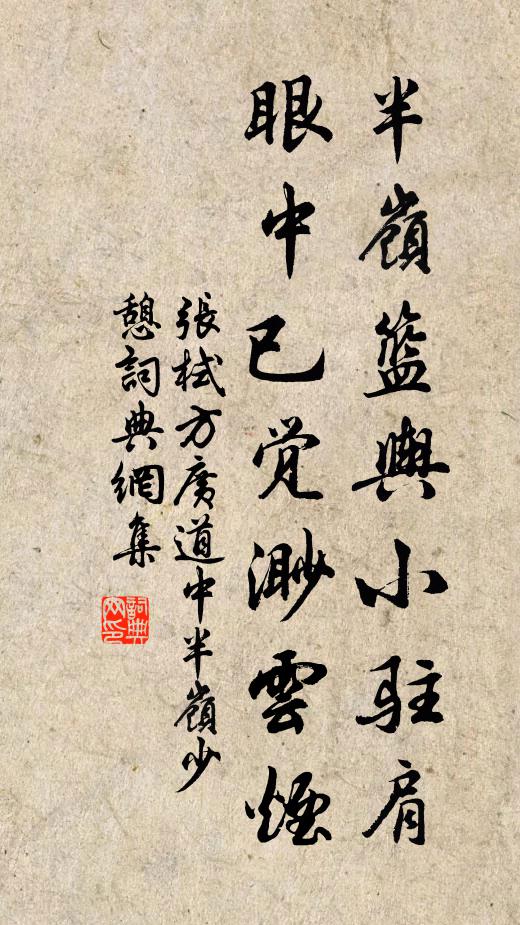 半嶺籃輿小駐肩
眼中已覺渺雲煙
張栻方廣道中半嶺少
憩詞典網集
詞典
网印